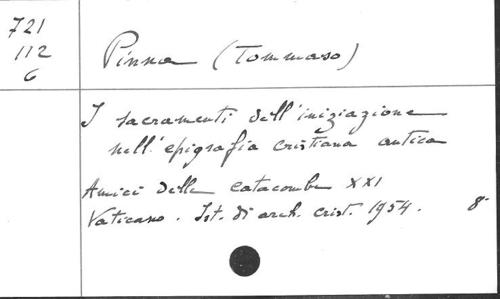 721
112
6
Pinna (Tommaso)
I sacramenti dell'iniziazione
nell'epigrafia cristiana antica
Amici delle catacombe XXI
Vaticano. Ist. di arch. crist. 1954. 8°